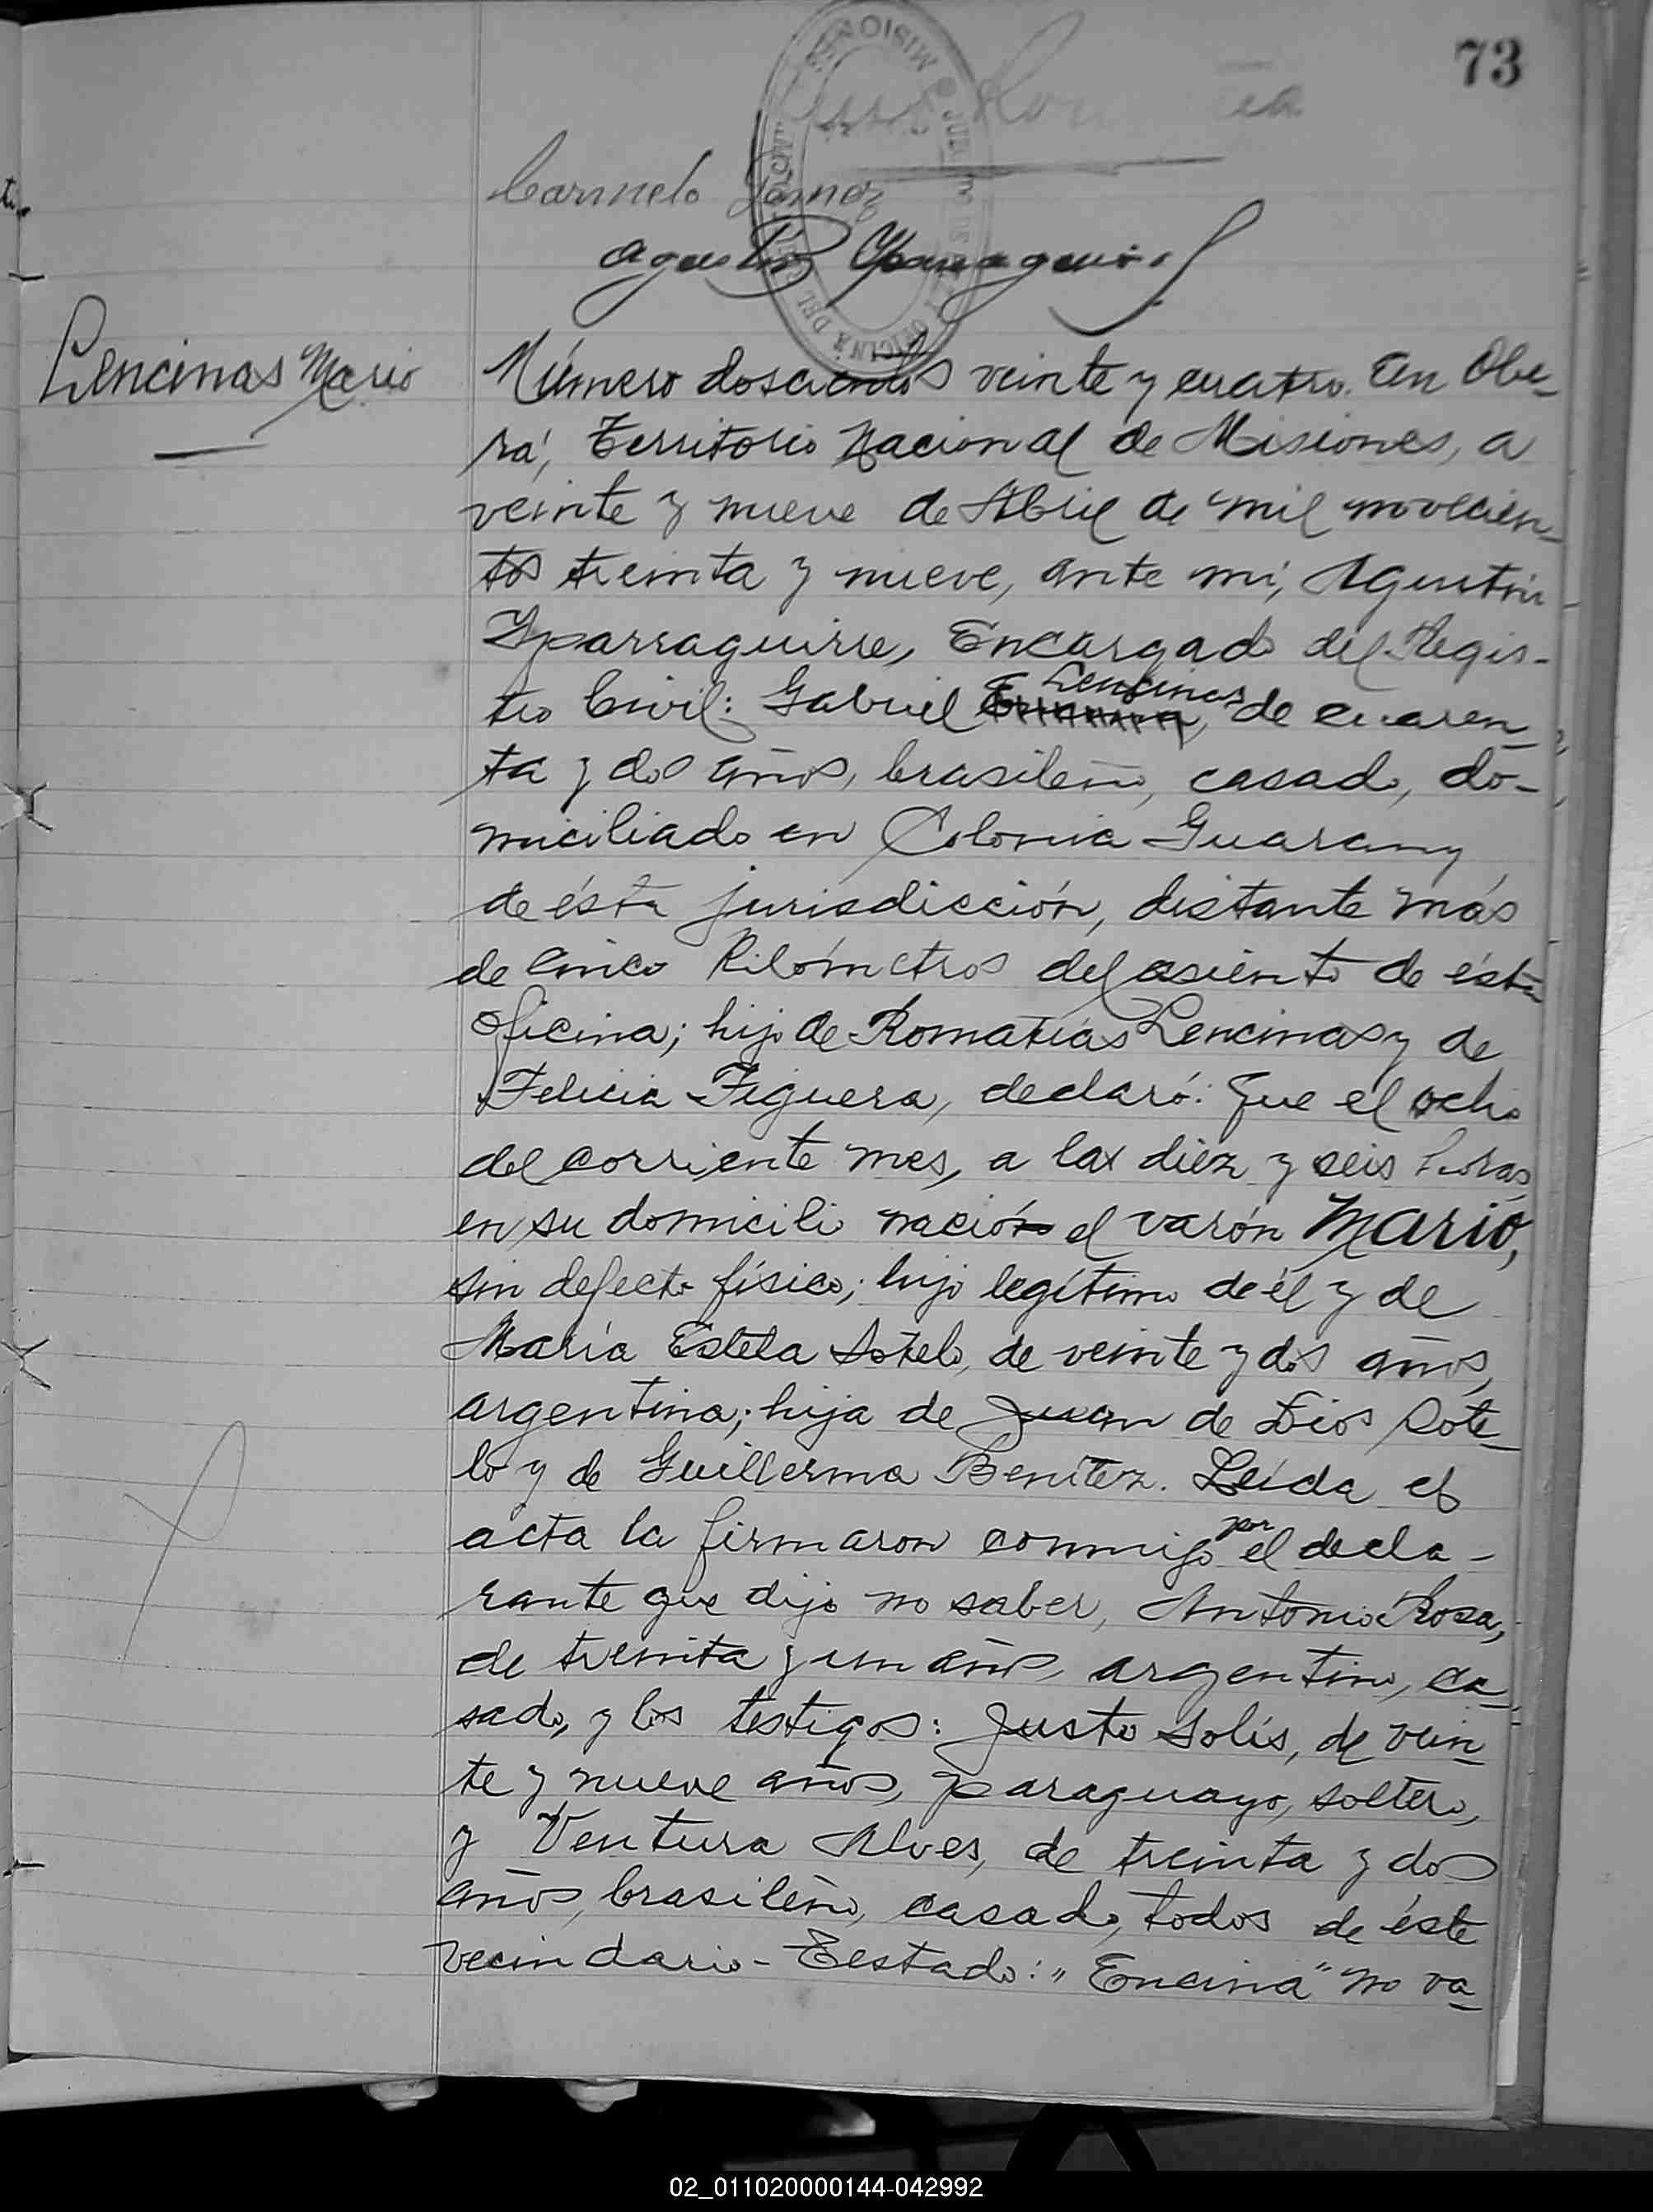 73
MISIONES
OFICINA DEL
Carmelo Gomez
Agustin Yparraguirre
Lencinas Mario
Número doscientos veinte y cuatro. En Obe-
rá, Territorio Nacional de Misiones, a
veinte y nueve de Abril de mil novecien-
tos treinta y nueve, ante mi, Agustín
Yparraguirre, Encargado del Regis-
Lencinas
tro Civil: Gabriel Encina, de cuaren-
ta y dos años, brasileño, casado, do-
miciliado en Colonia Guarany
de ésta jurisdicción, distante más
de cinco Kilómetros del asiento de ésta
oficina; hijo de Romatías Lencinas y de
Felicia Figuera, declaró: Que el ocho
del corriente mes, a las diez y seis horas
en su domicilio nació el varón Mario,
sin defecto físico; hijo legítimo de él y de
María Estela Sotelo, de veinte y dos años,
argentina; hija de Juan de Dios Sote-
lo y de Guillerma Benítez. Leída el
acta la firmaron conmigo por el decla-
rante que dijo no saber, Antonio Rosa,
de treinta y un años, argentino, ca-
sado, y los testigos: Justo Solís, de vein-
te y nueve años, paraguayo, soltero,
y Ventura Alves, de treinta y dos
años, brasileño, casado, todos de éste
vecindario - Testado: "Encina" no va-
02_011020000144-042992